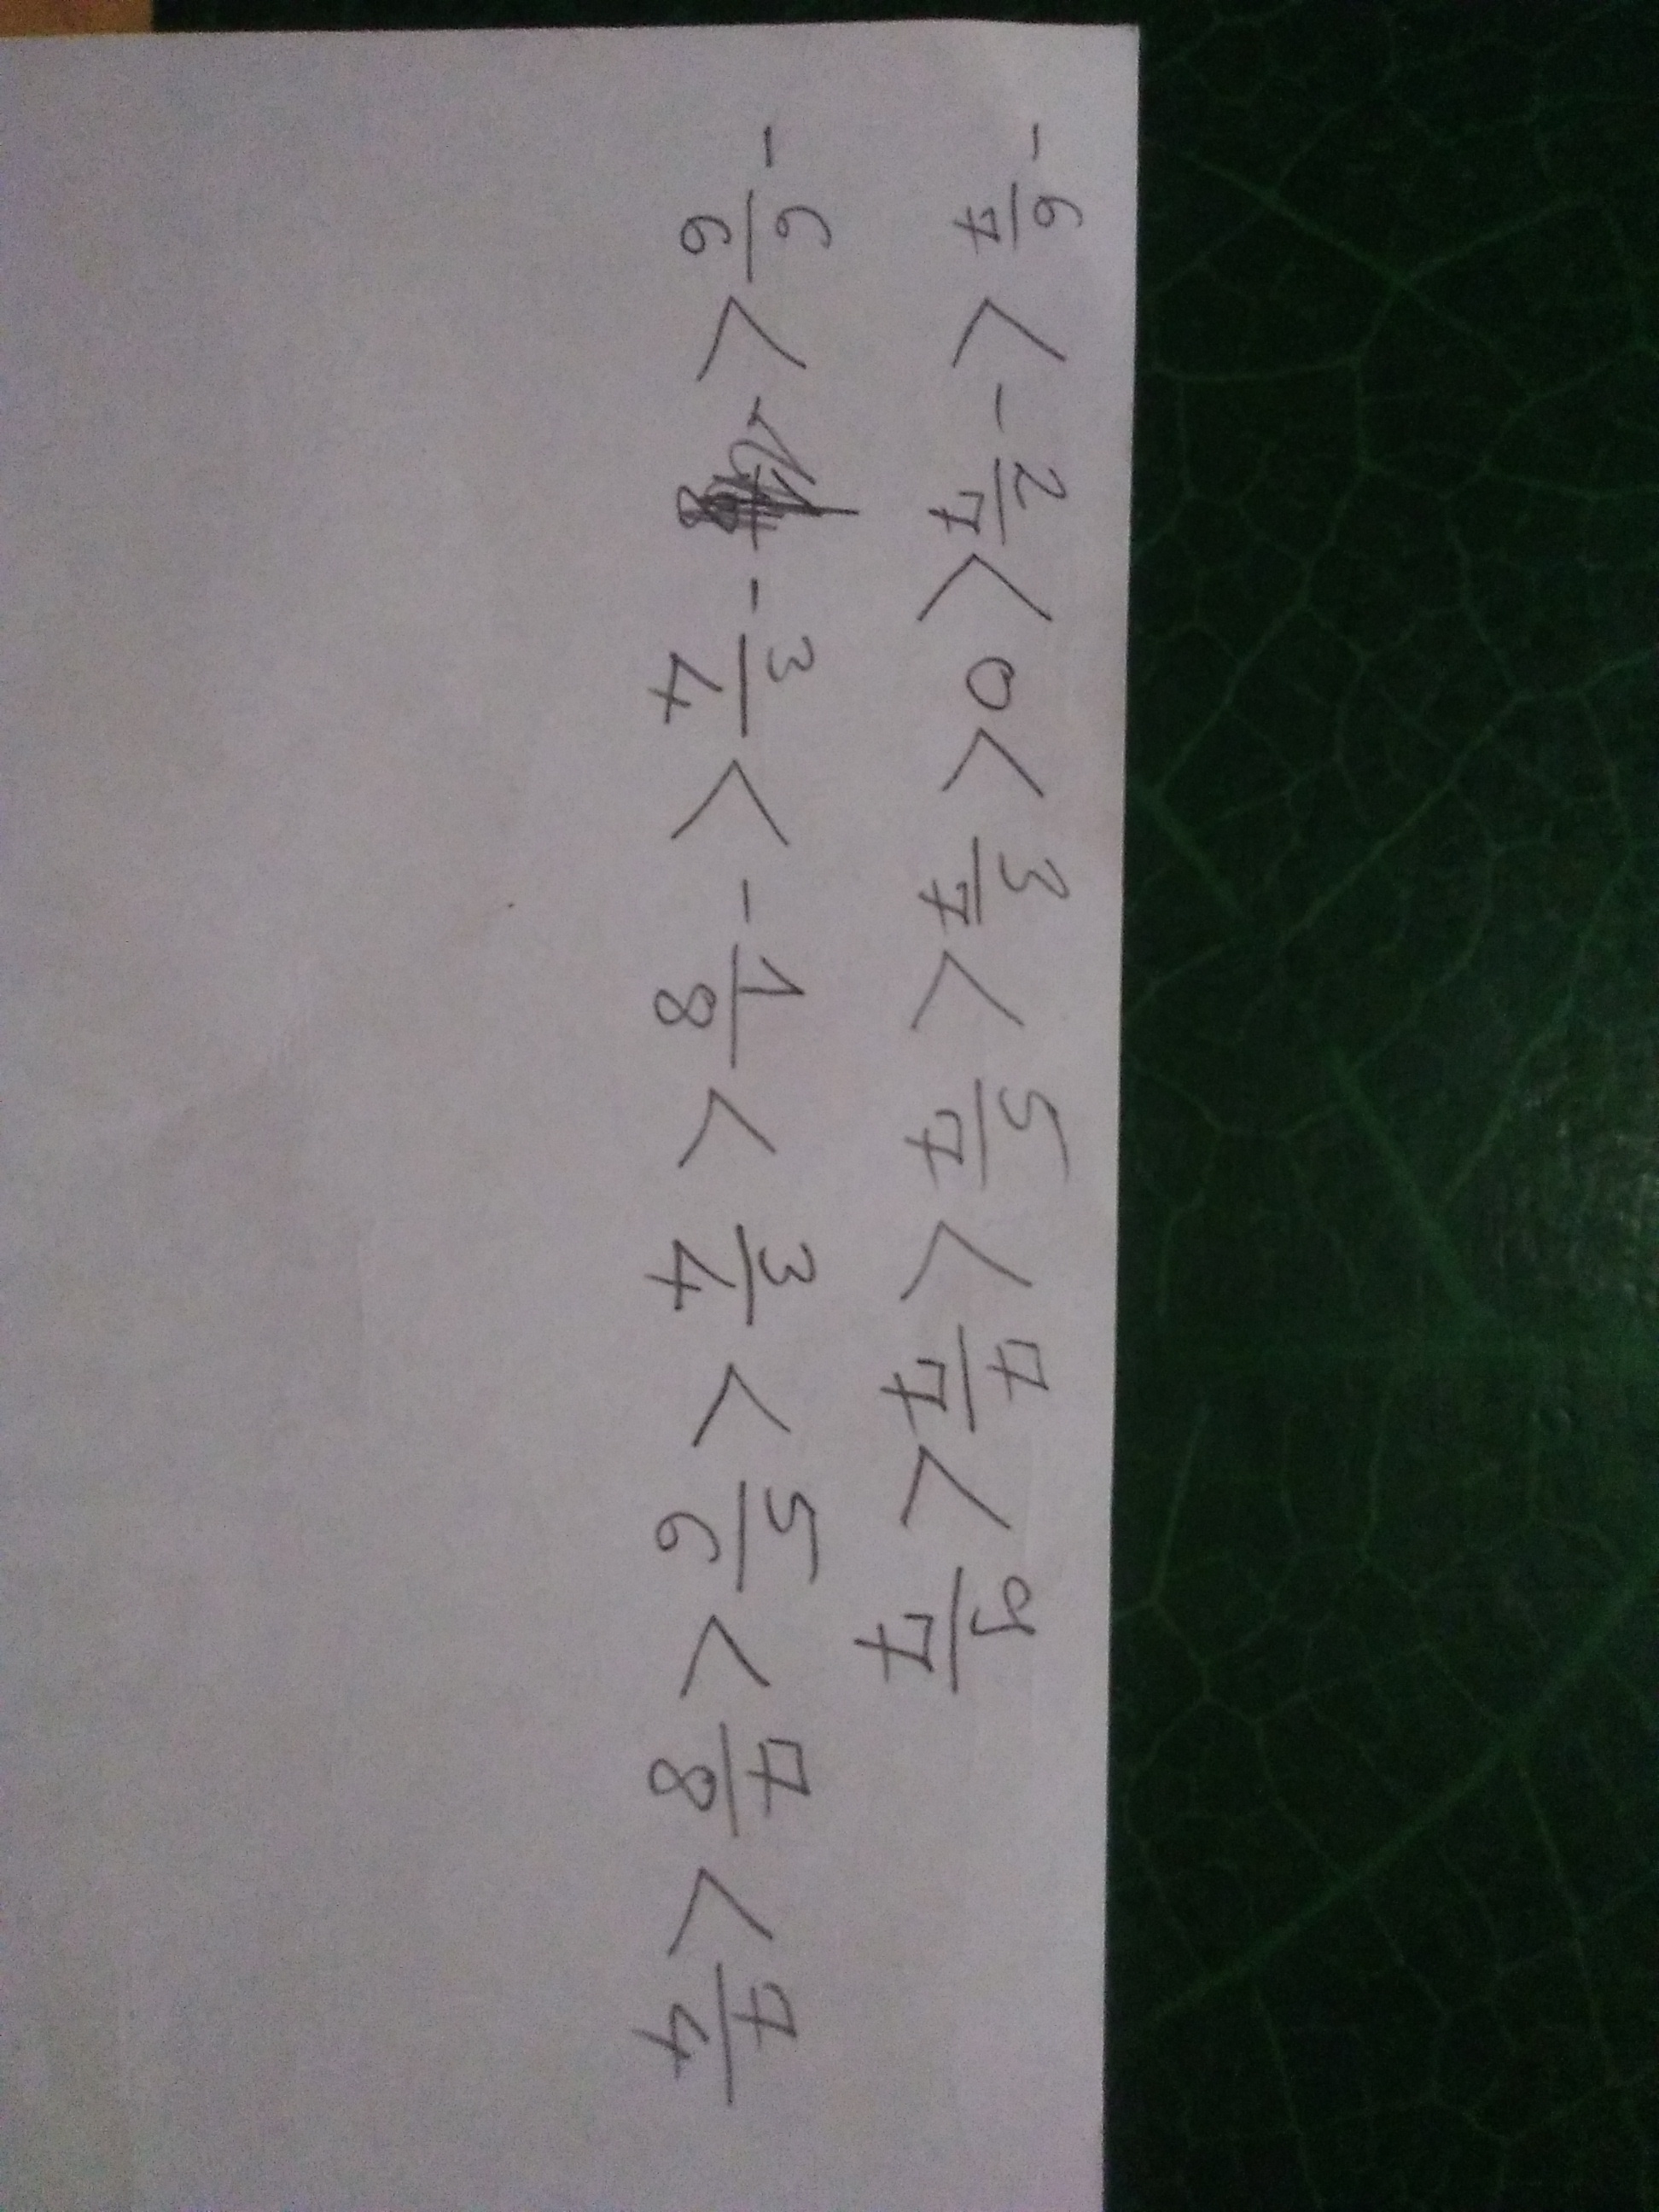 -6/7 < -2/7 < 0 < 3/7 < 5/7 < 7/7 < 9/7
-6/6 < -3/4 < -1/8 < 3/4 < 5/6 < 7/8 < 7/4